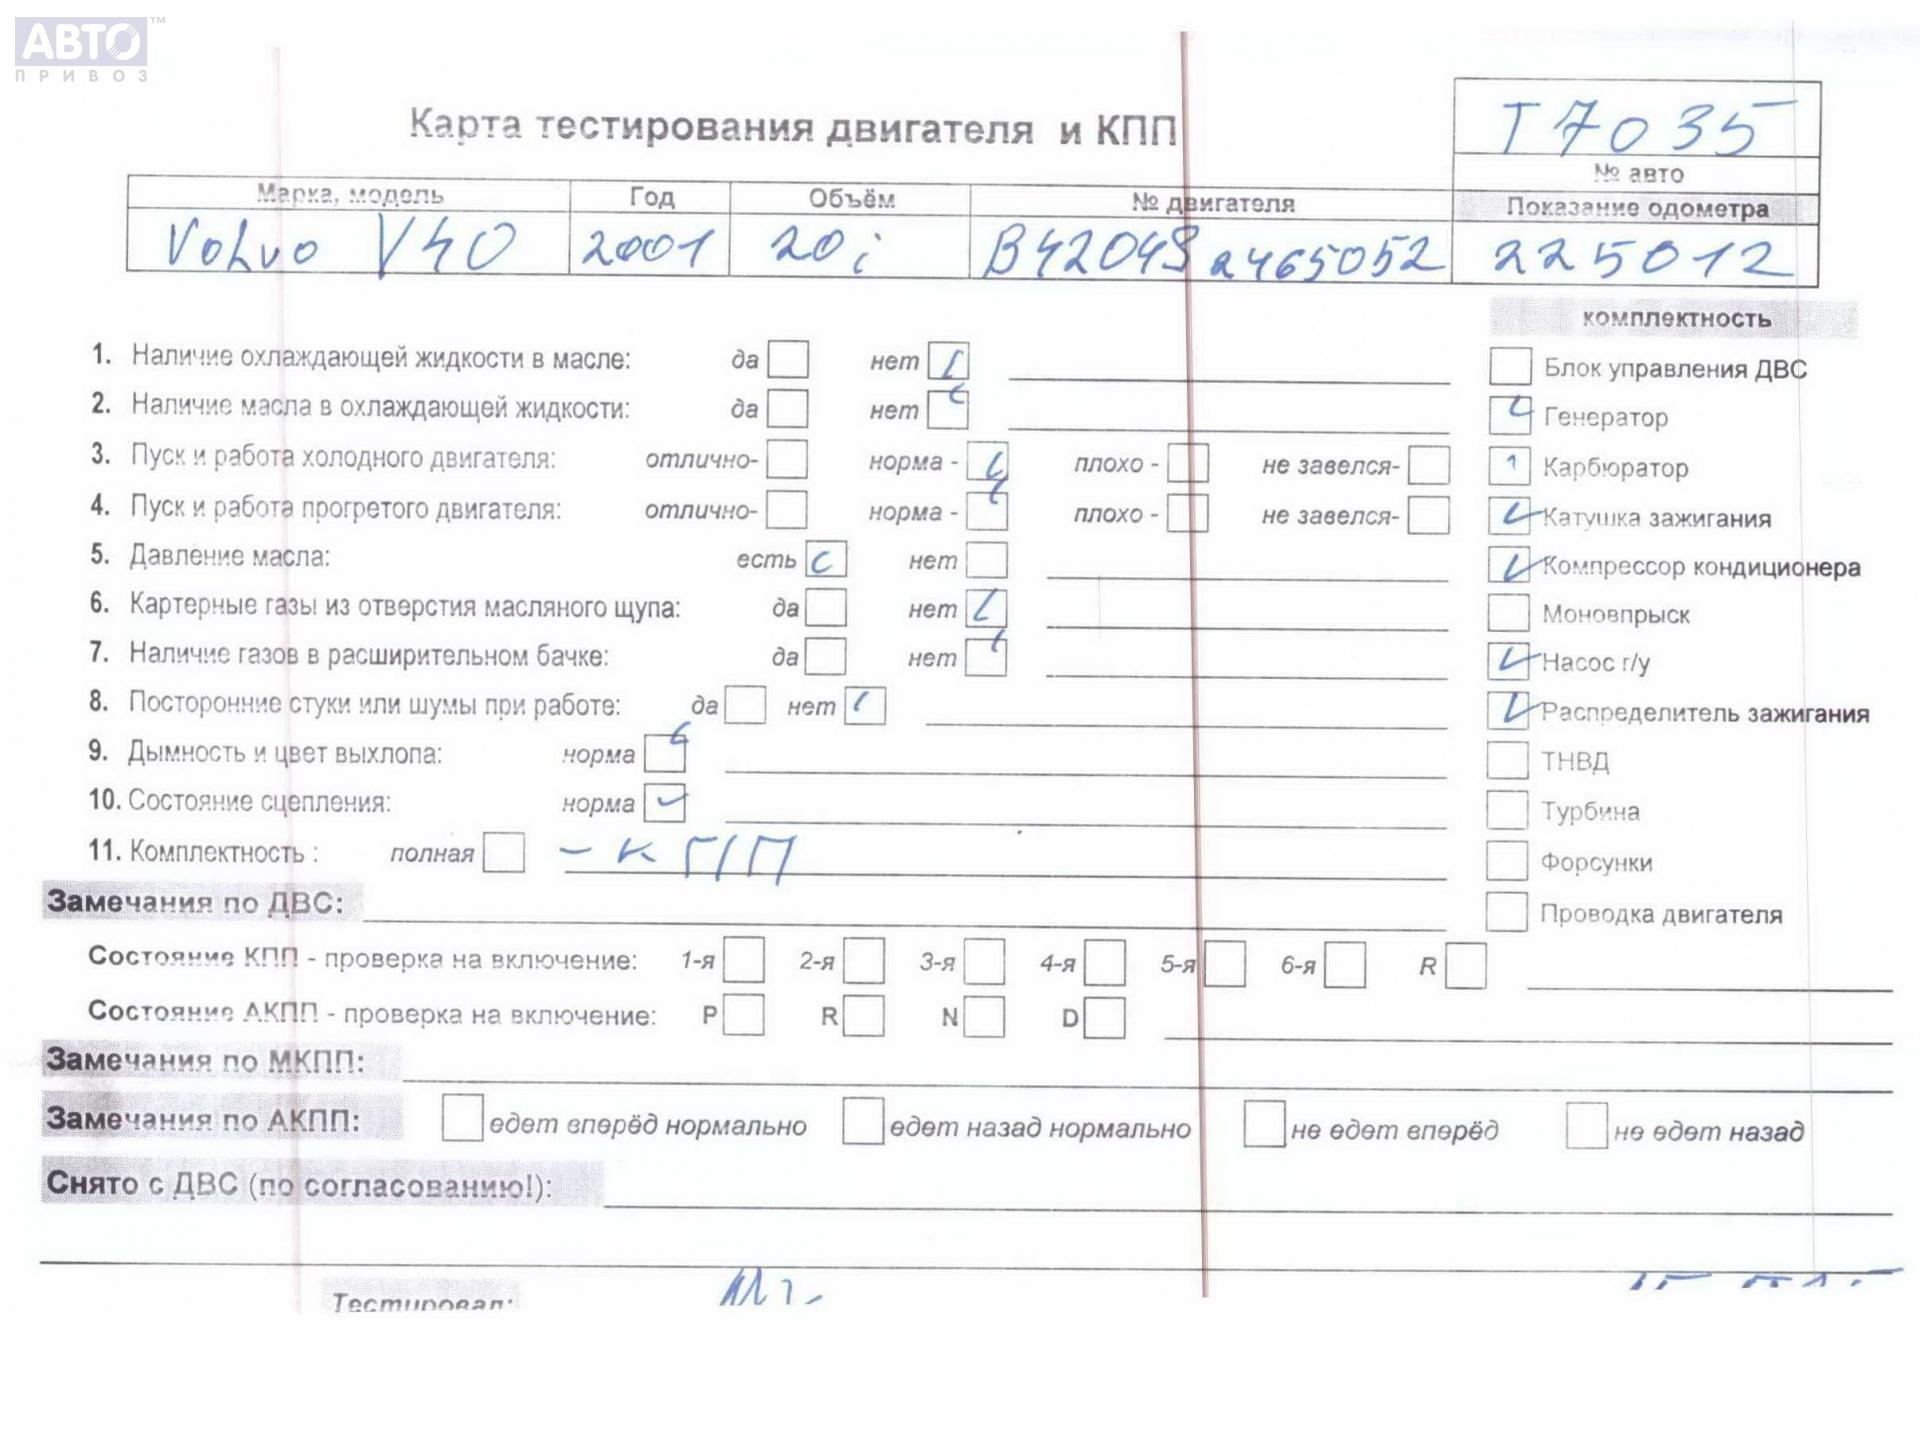 АВТО™
ПРИВОЗ
Карта тестирования двигателя и КПП
T7035
№ авто
Марка, модель Год Объём № двигателя Показание одометра
Volvo V40 2001 20i B4204S 2465052 225012
комплектность
1. Наличие охлаждающей жидкости в масле: да нет
2. Наличие масла в охлаждающей жидкости: да нет
3. Пуск и работа холодного двигателя: отлично- норма - плохо - не завелся-
4. Пуск и работа прогретого двигателя: отлично- норма - плохо - не завелся-
5. Давление масла: есть нет
6. Картерные газы из отверстия масляного щупа: да нет
7. Наличие газов в расширительном бачке: да нет
8. Посторонние стуки или шумы при работе: да нет
9. Дымность и цвет выхлопа: норма
10. Состояние сцепления: норма
11. Комплектность : полная - КПП
Блок управления ДВС
Генератор
Карбюратор
Катушка зажигания
Компрессор кондиционера
Моновпрыск
Насос г/у
Распределитель зажигания
ТНВД
Турбина
Форсунки
Проводка двигателя
Замечания по ДВС:
Состояние КПП - проверка на включение: 1-я 2-я 3-я 4-я 5-я 6-я R
Состояние АКПП - проверка на включение: P R N D
Замечания по МКПП:
Замечания по АКПП: едет вперёд нормально едет назад нормально не едет вперёд не едет назад
Снято с ДВС (по согласованию!):
Тестировал: